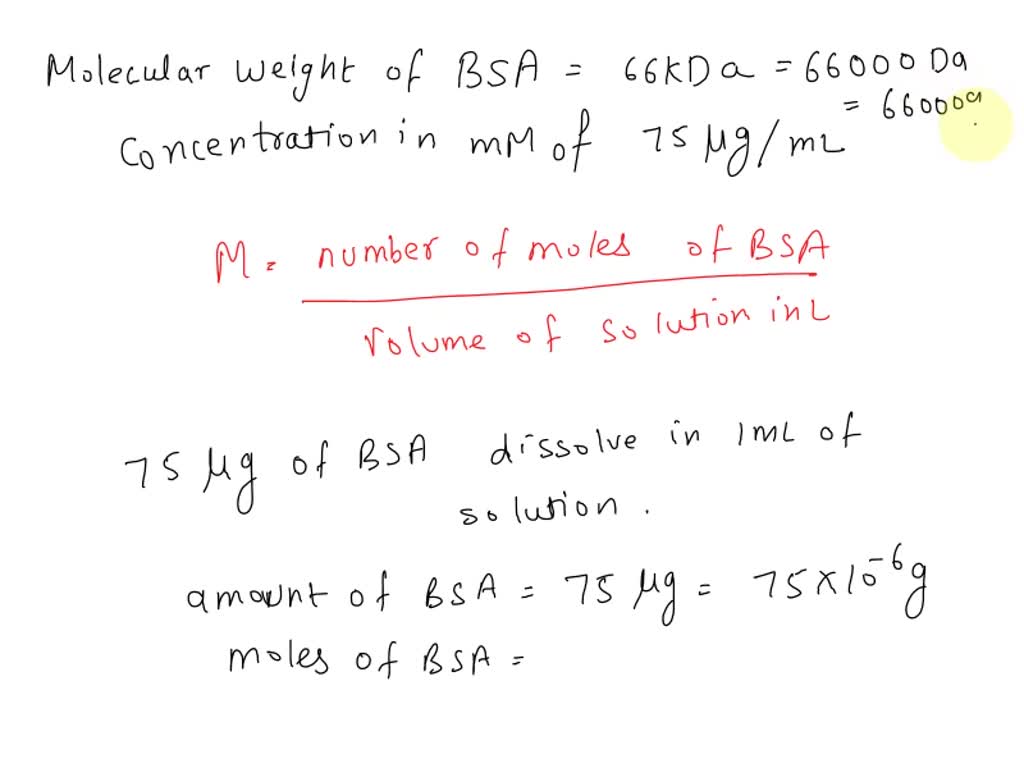 Molecular weight of BSA = 66KDa = 66000 Da
= 66000g
Concentration in mM of 75 μg/mL
M = number of moles of BSA
volume of solution in L
75 μg of BSA dissolve in 1mL of
solution.
amount of BSA = 75 μg = 75×10⁻⁶g
moles of BSA =